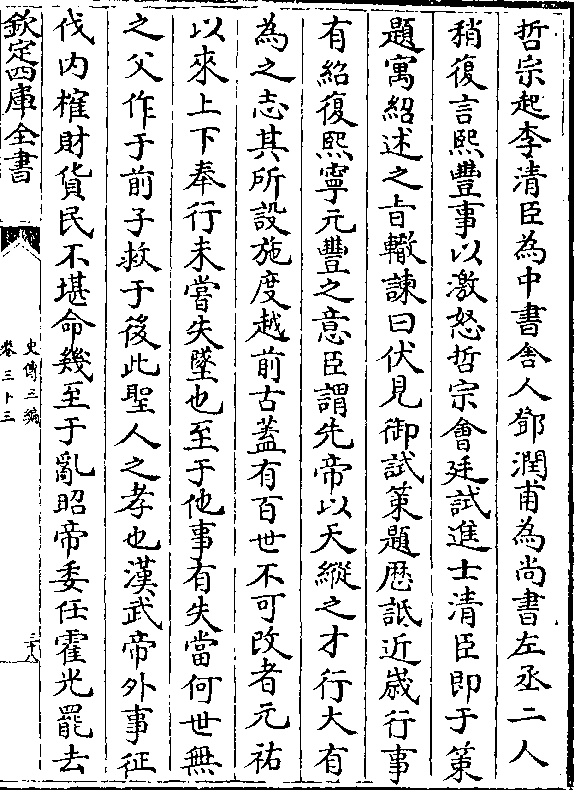 哲宗起李清臣為中書舍人鄧潤甫為尚書左丞二人
稍復言熙豐事以激怒哲宗㑹廷試進士清臣即于策
題寓紹述之㫖轍諫曰伏見御試策題厯詆近嵗行事
有紹復熙寧元豐之意臣謂先帝以天縱之才行大有
為之志其所設施度越前古蓋有百世不可改者元祐
以來上下奉行未嘗失墜也至于他事有失當何世無
之父作于前子救于後此聖人之孝也漢武帝外事征
伐内榷財貨民不堪命幾至于亂昭帝委任霍光罷去
欽定四庫全書
史傳三編
卷三十三
三十八